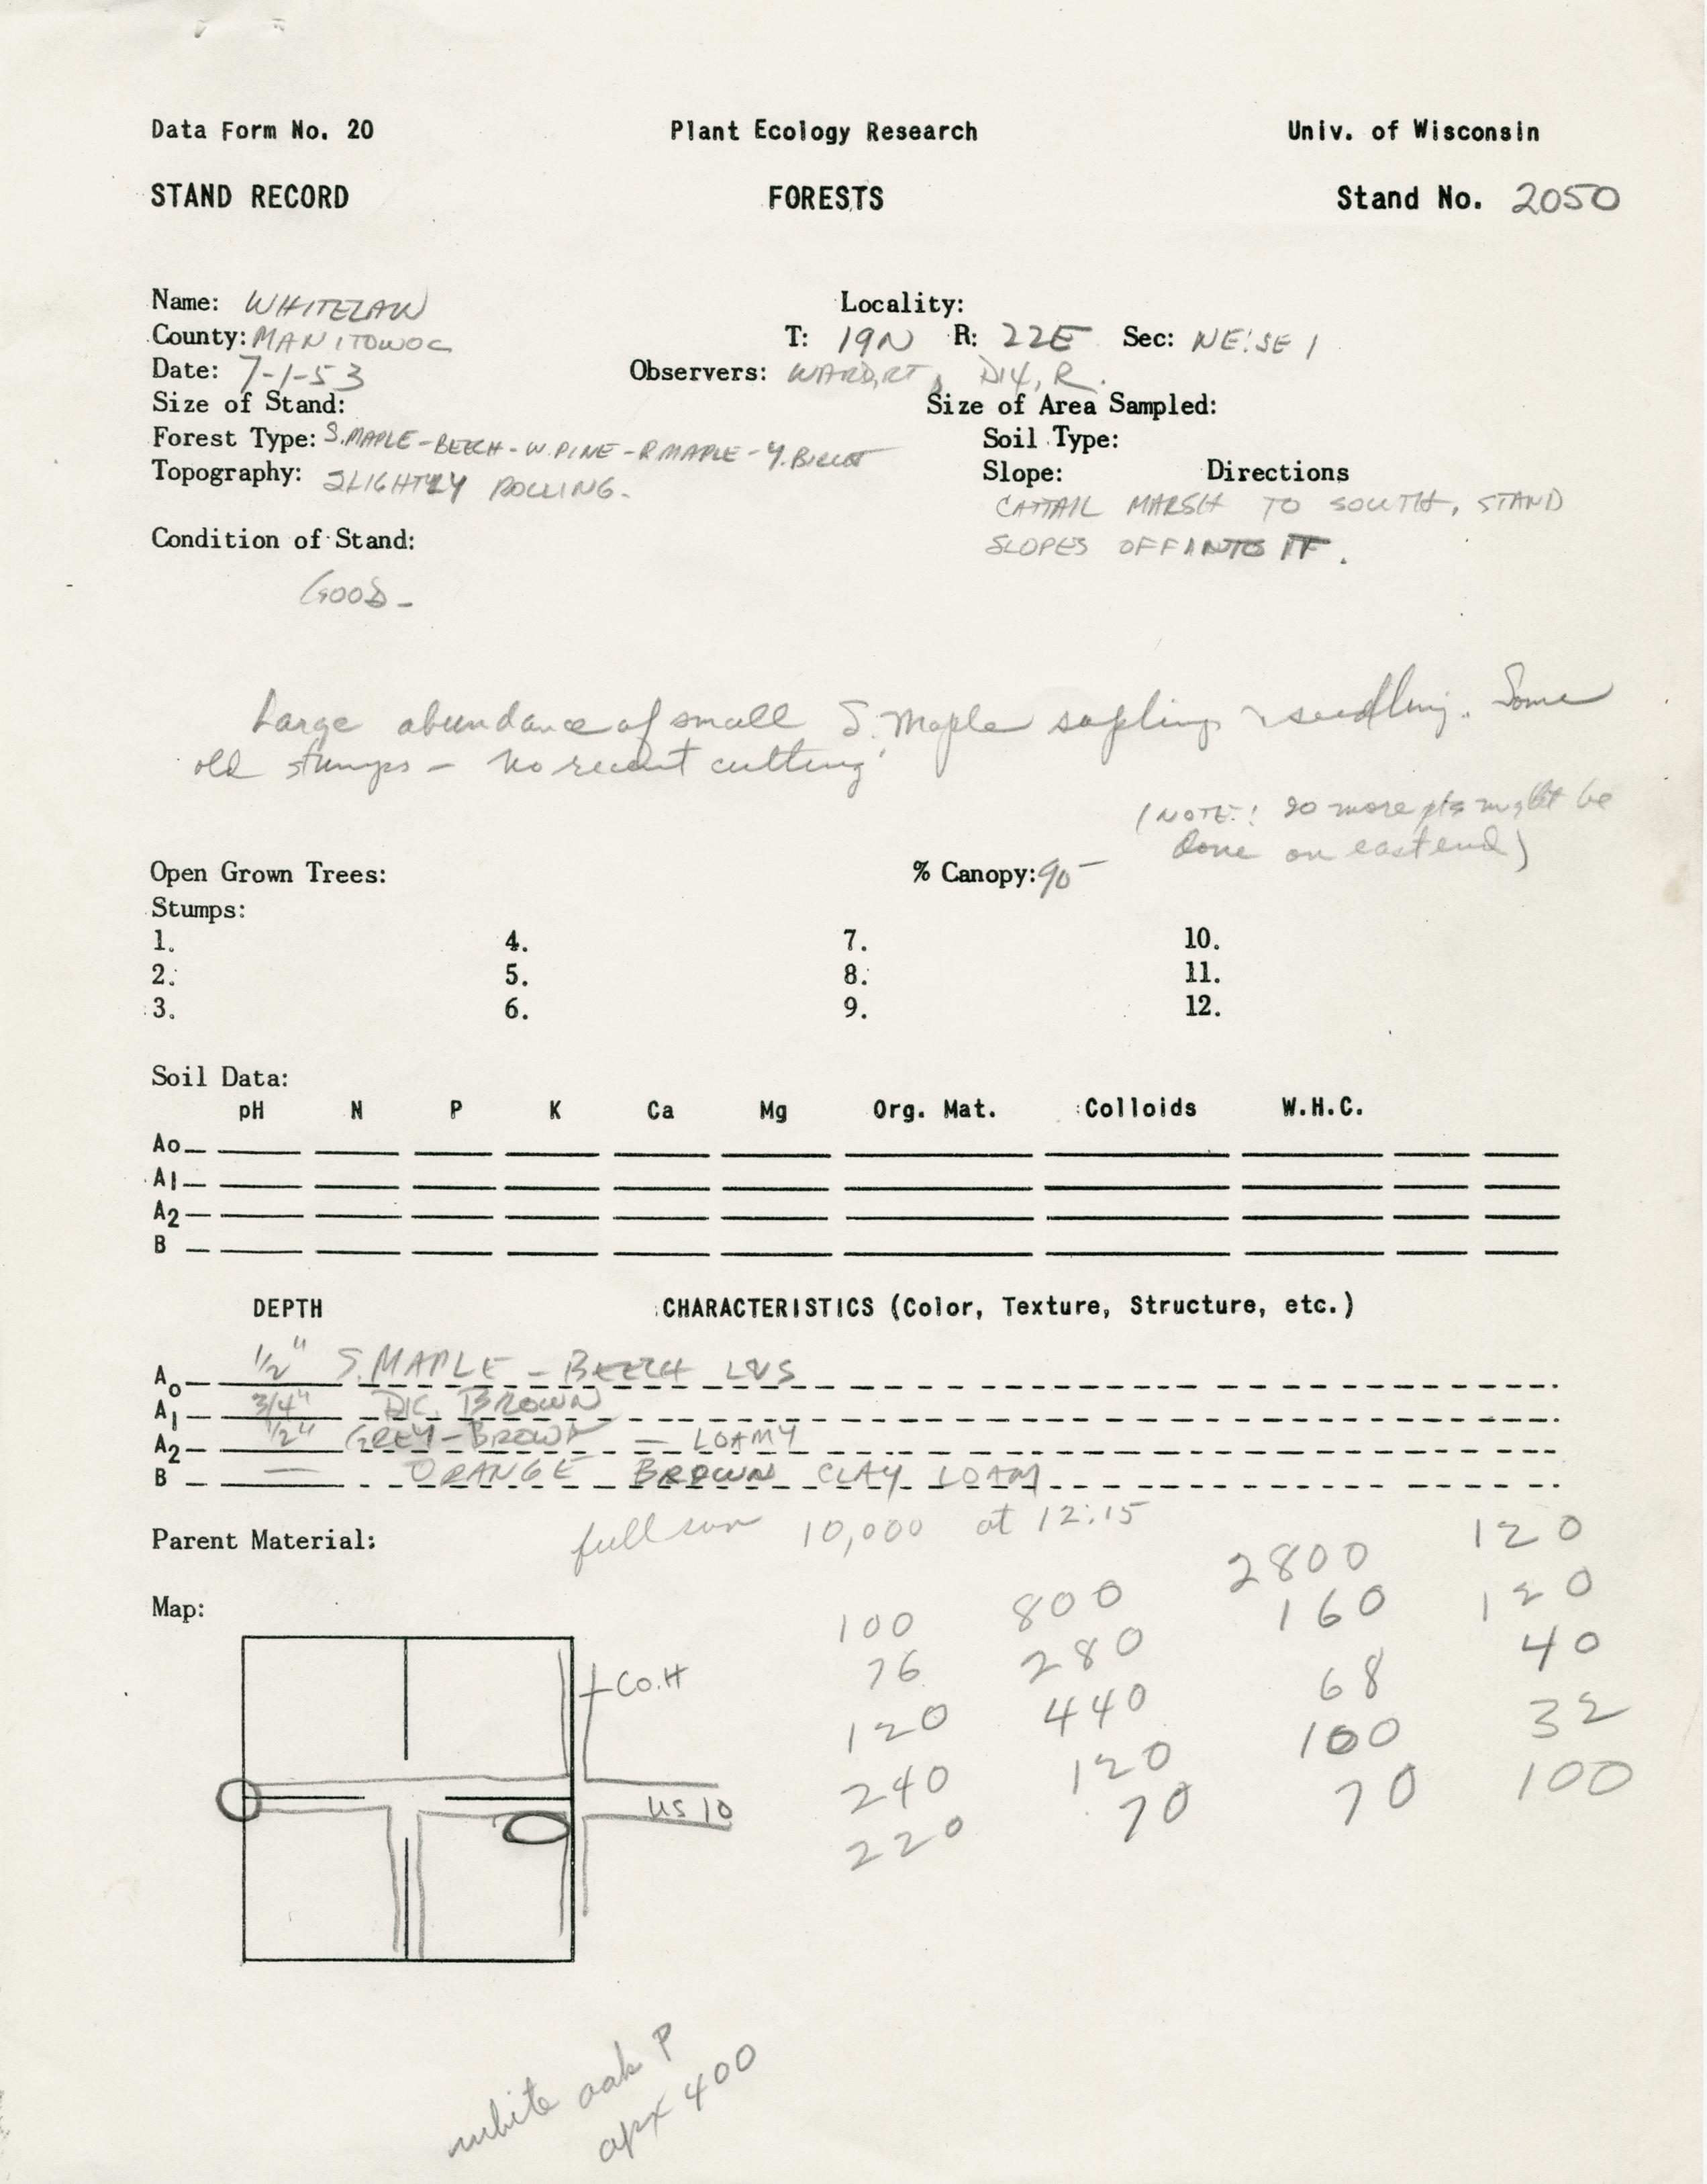 Data Form No. 20 Plant Ecology Research Univ. of Wisconsin
STAND RECORD FORESTS Stand No. 2050
Name: WHITELAW Locality:
County: MANITOWOC T: 19N R: 22E Sec: NE:SE 1
Date: 7-1-53 Observers: WARD, RT, DIX, R.
Size of Stand: Size of Area Sampled:
Forest Type: S.MAPLE-BEECH-W.PINE-R MAPLE-Y.BIRCH Soil Type:
Topography: SLIGHTLY ROLLING. Slope: Directions
CATTAIL MARSH TO SOUTH, STAND
Condition of Stand: SLOPES OFF INTO IT.
GOOD-
Large abundance of small S. Maple saplings & seedling. Some
old stumps - No recent cutting
(NOTE: 20 more pts might be
done on east end)
Open Grown Trees: % Canopy: 90-
Stumps:
1. 4. 7. 10.
2. 5. 8. 11.
3. 6. 9. 12.
Soil Data:
pH N P K Ca Mg Org. Mat. Colloids W.H.C.
Ao
A1
A2
B
DEPTH CHARACTERISTICS (Color, Texture, Structure, etc.)
Ao 1/2" S.MAPLE - BEECH LVS
A1 3/4" DK. BROWN
A2 1/2" GREY-BROWN - LOAMY
B - ORANGE BROWN CLAY LOAM
Parent Material: full sun 10,000 at 12:15
Map:
100 800 2800 120
76 280 160 120
120 440 68 40
240 120 100 32
220 70 70 100
Co.H
US 10
white oak P
apx 400